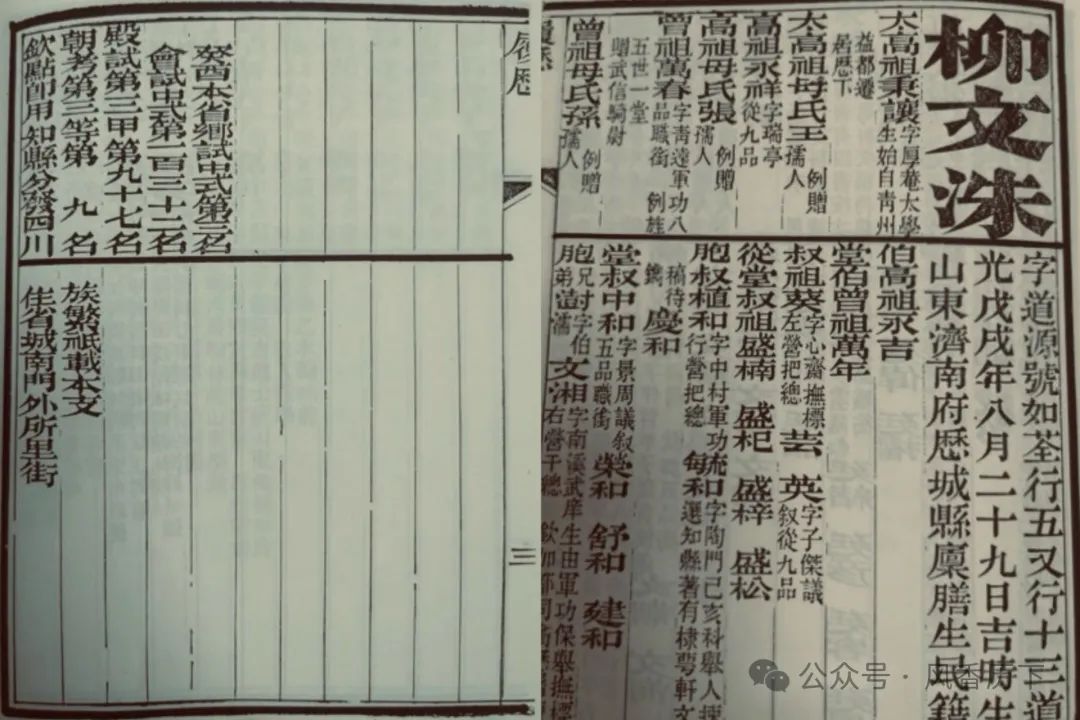 柳文洙
字道源號如荃行五又行十三道
光戊戌年八月二十九日吉時生
山東濟南府歷城縣廩膳生民籍
太高祖秉讓字厚菴太學
生始自青州
益都遷
居歷下
太高祖母氏王例贈
孺人
高祖永祥字瑞亭
從九品
高祖母氏張例贈
孺人
曾祖萬春字青達軍功八
品職銜 例旌
五世一堂
贈武信騎尉
曾祖母氏孫例贈
孺人
伯高祖永吉
堂伯曾祖萬年
叔祖葵字心齋撫標
左營把總
芸 英字子傑議
叙從九品
從堂叔祖盛楠 盛杞 盛梓 盛松
胞叔植和字中村軍功
行營把總
毓和字陶門己亥科舉人揀
選知縣著有棣萼軒文
稿待
鐫
慶和
堂叔中和字景周議叙
五品職銜
榮和 舒和 建和
文湘字南溪武庠生由軍功保舉撫標
右營千總
履歷
三
癸酉本省鄉試中式第三名
會試中式第一百三十二名
殿試第三甲第九十七名
朝考第三等第 九 名
欽點即用知縣分發四川
族繁祇載本支
住省城南門外所里街
公众号·风香历下